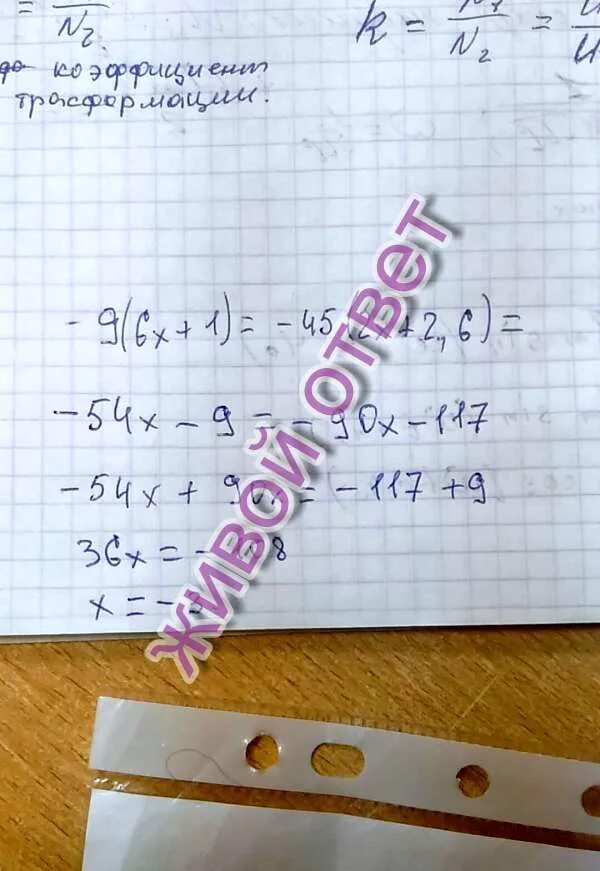 = N₂
k = N₁/N₂ = U
коэффициент
трасформации.
-9(6x+1) = -45(2x+2,6) =
-54x - 9 = -90x - 117
-54x + 90x = -117 + 9
36x = -108
x = -3
ЖИВОЙ ОТВЕТ